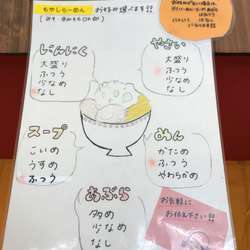 もやしらーめん
お好みが選べます!!
にんにく
大盛り
ふつう
少なめ
なし
やさい
大盛り
ふつう
少なめ
なし
スープ
こいめ
うすめ
ふつう
めん
かため
ふつう
やわらかめ
あぶら
多め
少なめ
なし
お気軽に
お伝え下さい!!